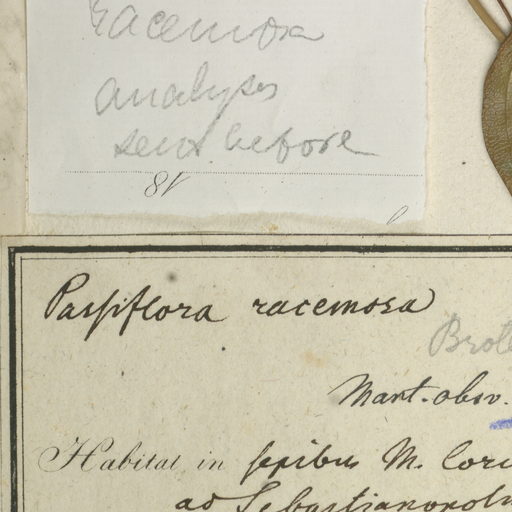 racemosa
analyses
sent before
81
Passiflora racemosa
Brot
Mart. obsv.
Habitat in sepibus M. Cor
ad Sebastianopol